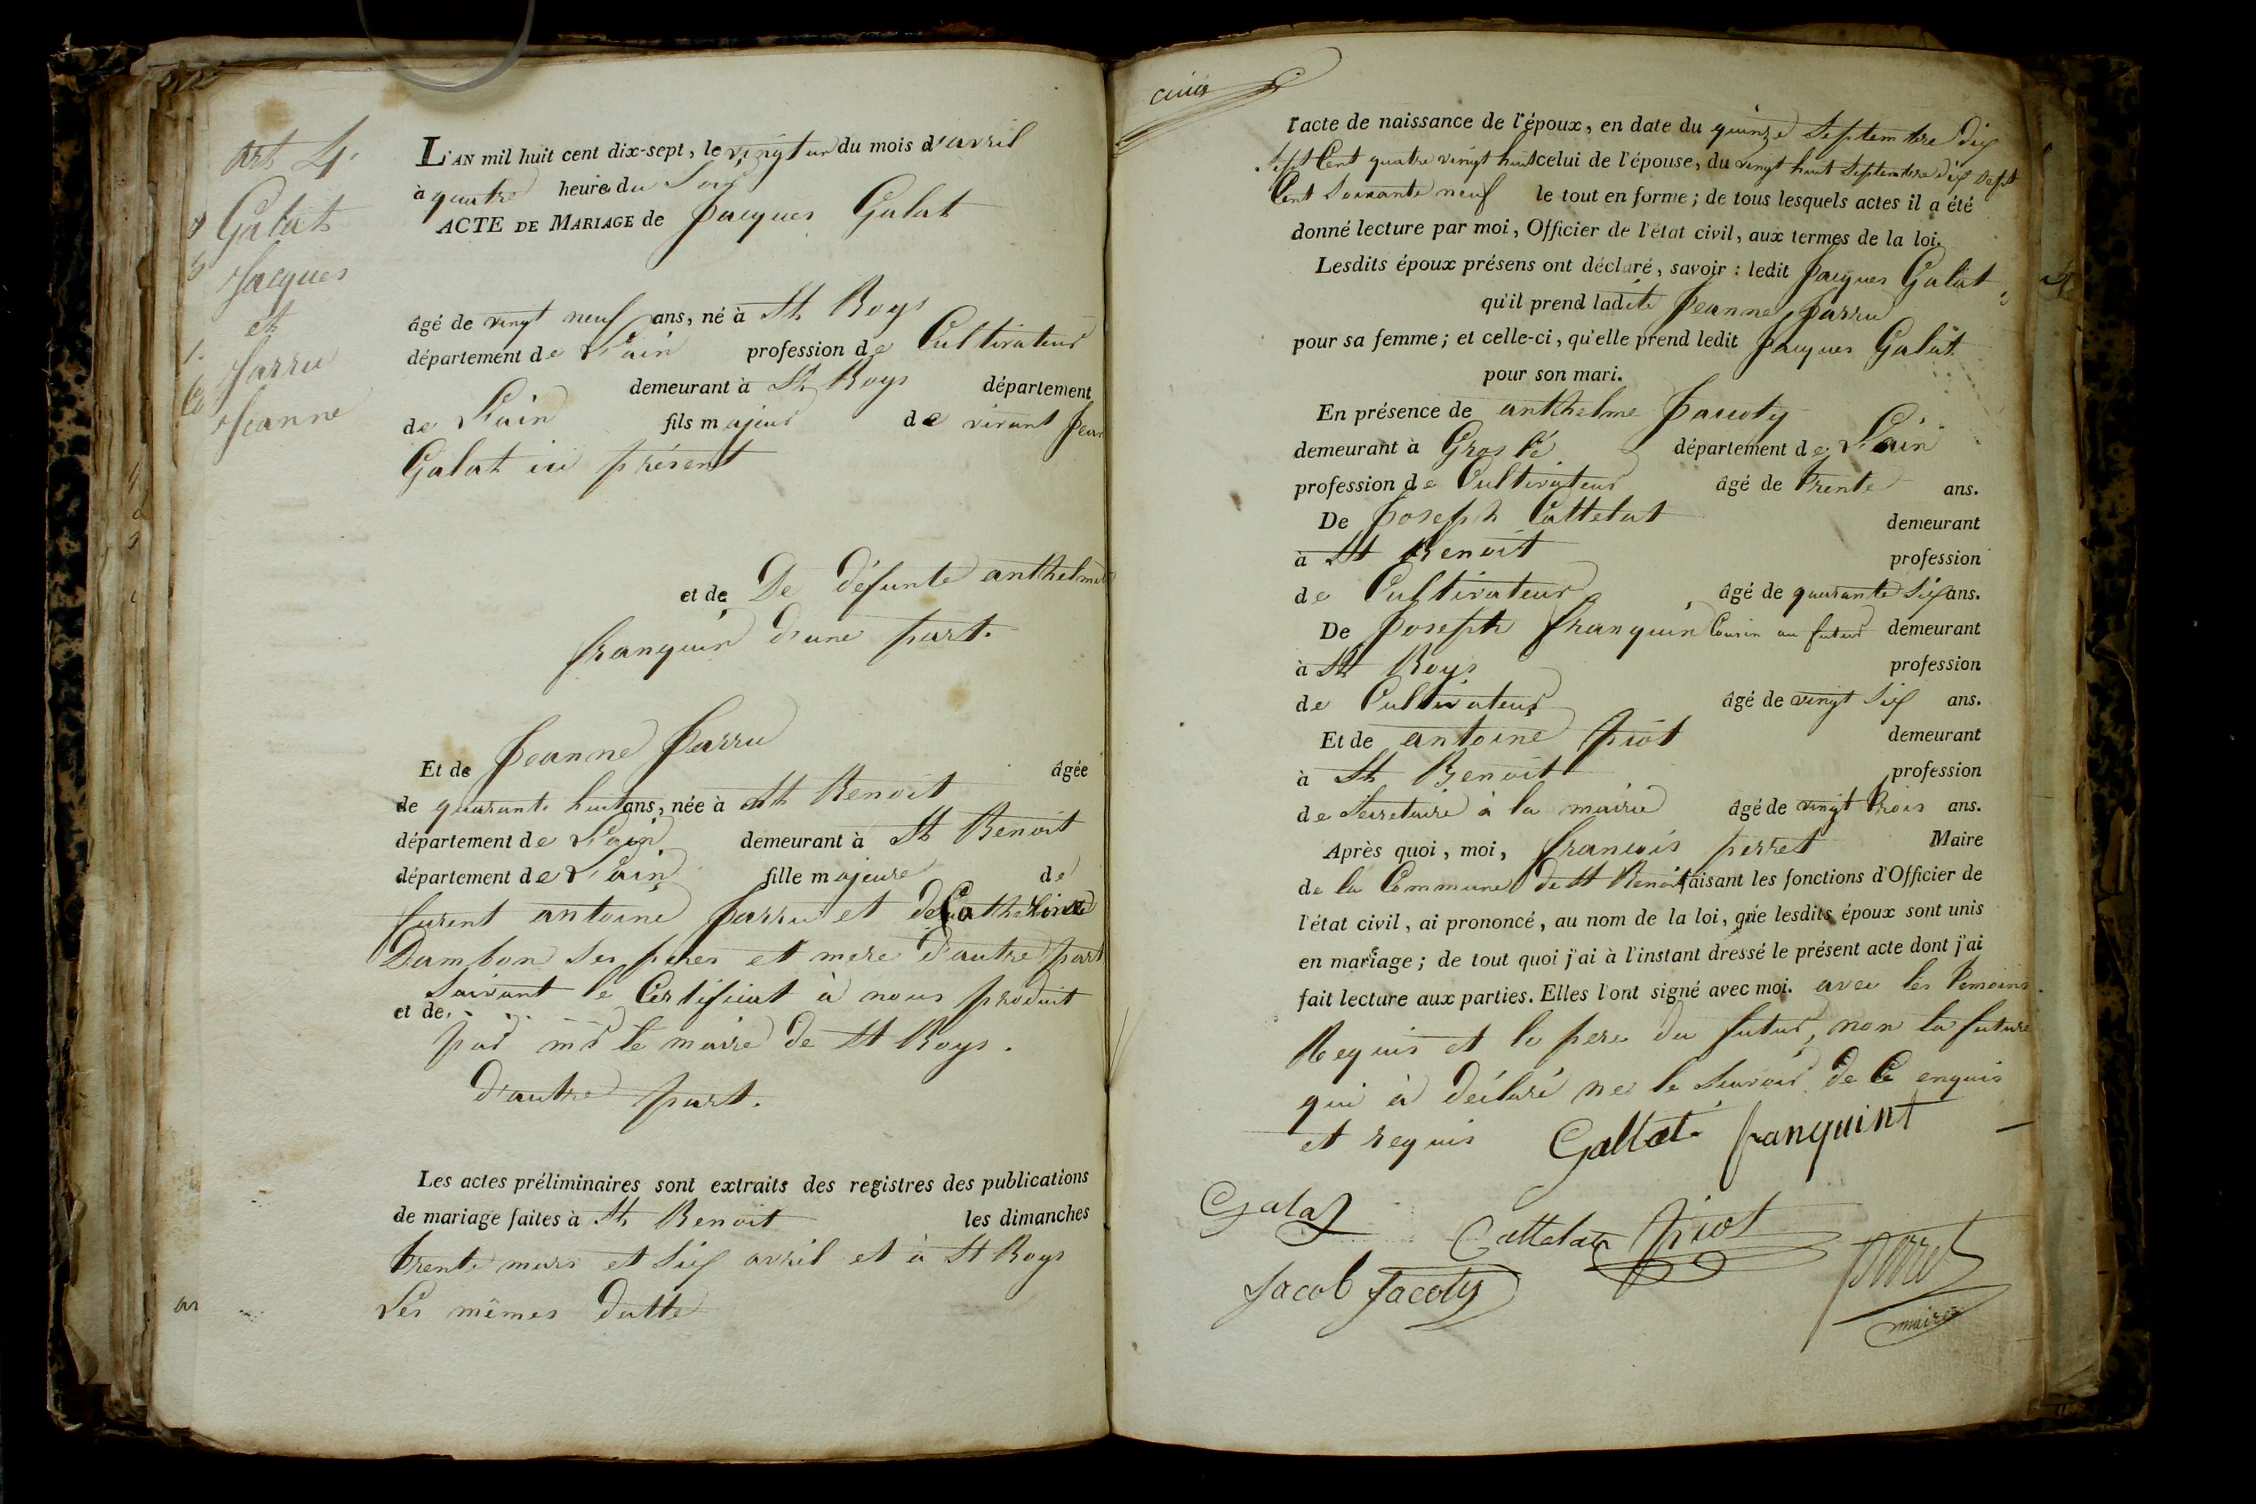 art 4.
Galat
Jacques
et
Jarru
Jeanne
L'AN mil huit cent dix-sept, le vingt un du mois d'avril
à quatre heures du Soir
ACTE DE MARIAGE de Jacques Galat
âgé de vingt neuf ans, né à St Boys
département de L'ain profession de Cultivateur
demeurant à St Boys département
de L'ain fils majeur de vivant Jean
Galat ici présent
et de De défunte anthelme
franquin d'une part.
Et de Jeanne Jarru âgée
de quarante huit ans, née à St Benoit
département de L'ain demeurant à St Benoit
département de L'ain fille majeure de
furent antoine Jarru et de Catherine
Dambon ses peres et mere d'autre part
Suivant le Certificat à nous produit
et de
par mr le maire de St Boys.
d'autre part.
Les actes préliminaires sont extraits des registres des publications
de mariage faites à St Benoit les dimanches
trente mars et Six avril et à St Boys
Les mêmes datte
cinq
l'acte de naissance de l'époux, en date du quinze Septembre dix
Sept Cent quatre vingt huit celui de l'épouse, du vingt huit Septembre dix Sept
Cent Soixante neuf le tout en forme; de tous lesquels actes il a été
donné lecture par moi, Officier de l'état civil, aux termes de la loi.
Lesdits époux présens ont déclaré, savoir : ledit Jacques Galat
qu'il prend ladite Jeanne Jarru
pour sa femme; et celle-ci, qu'elle prend ledit Jacques Galat
pour son mari.
En présence de anthelme Jacoty
demeurant à Groslé département de L'ain
profession de Cultivateur âgé de trente ans.
De Joseph Cattelat demeurant
à St Benoit profession
de Cultivateur âgé de quarante Six ans.
De Joseph franquin Cousin au futur demeurant
à St Boys profession
de Cultivateur âgé de vingt Six ans.
Et de antoine piot demeurant
à St Benoit profession
de Secretaire à la mairie âgé de vingt trois ans.
Après quoi, moi, francois perret Maire
de la Commune de St Benoit faisant les fonctions d'Officier de
l'état civil, ai prononcé, au nom de la loi, que lesdits époux sont unis
en mariage; de tout quoi j'ai à l'instant dressé le présent acte dont j'ai
fait lecture aux parties. Elles l'ont signé avec moi. avec les temoins
Requis et le pere du futur, non la future
qui à déclaré ne le Scavoir de Ce enquis
et requis Galtat franquint
Galat
Cattelat piot
Jacob Jacoty
perret
maire